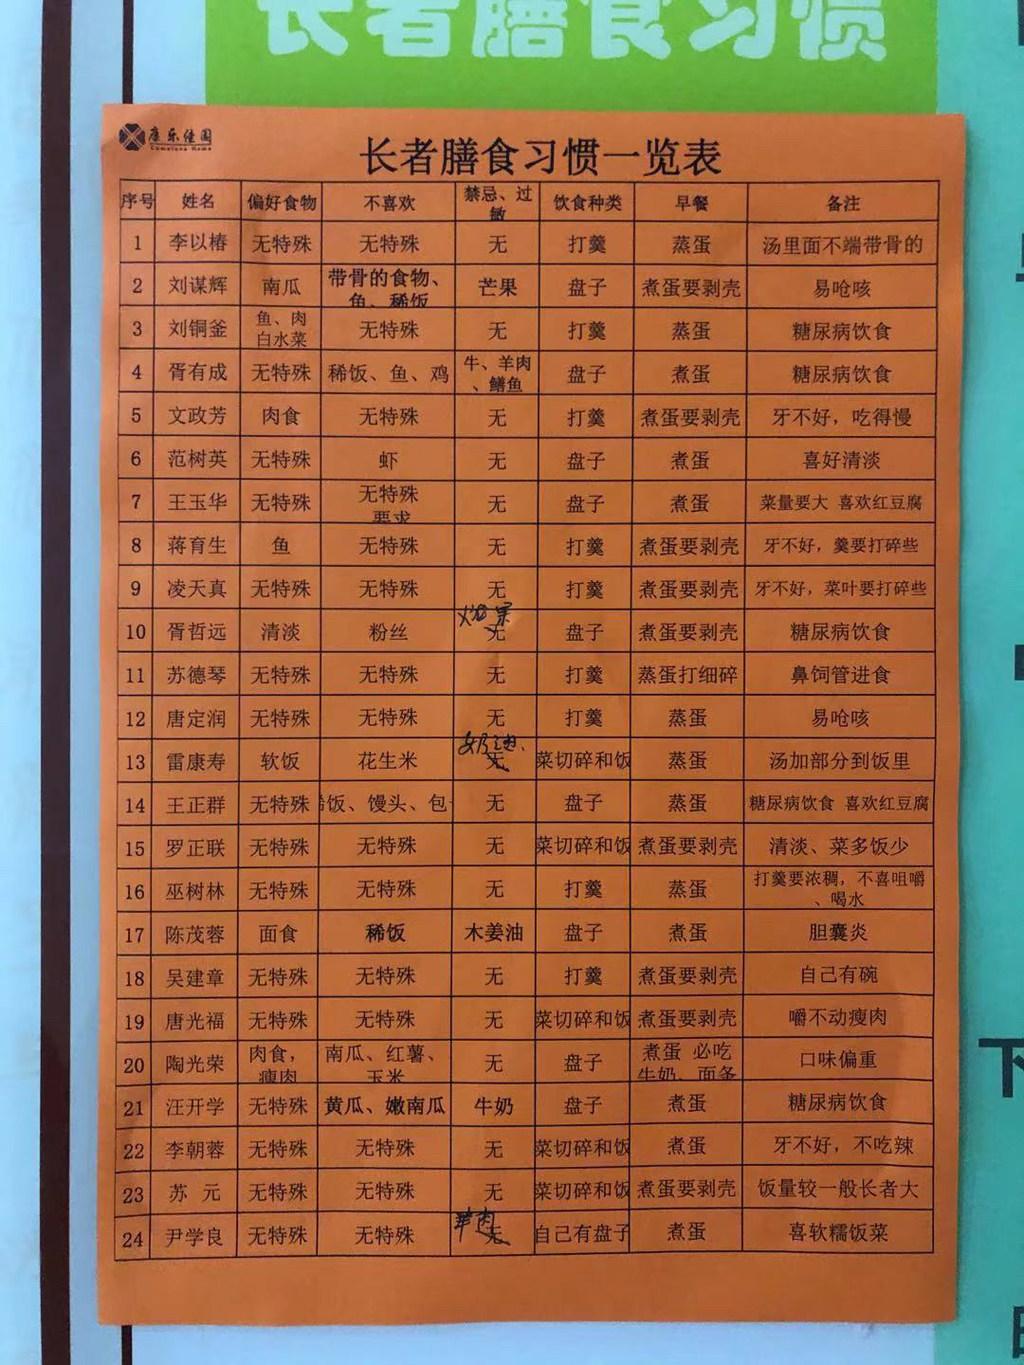 长者膳食习惯
康乐佳园
长者膳食习惯一览表
序号 姓名 偏好食物 不喜欢 禁忌、过敏 饮食种类 早餐 备注
1 李以椿 无特殊 无特殊 无 打羹 蒸蛋 汤里面不端带骨的
2 刘谋辉 南瓜 带骨的食物、鱼、稀饭 芒果 盘子 煮蛋要剥壳 易呛咳
3 刘铜釜 鱼、肉 白水菜 无特殊 无 打羹 蒸蛋 糖尿病饮食
4 胥有成 无特殊 稀饭、鱼、鸡 牛、羊肉、鳝鱼 盘子 煮蛋 糖尿病饮食
5 文政芳 肉食 无特殊 无 打羹 煮蛋要剥壳 牙不好，吃得慢
6 范树英 无特殊 虾 无 盘子 煮蛋 喜好清淡
7 王玉华 无特殊 无特殊要求 无 盘子 煮蛋 菜量要大 喜欢红豆腐
8 蒋育生 鱼 无特殊 无 打羹 煮蛋要剥壳 牙不好，羹要打碎些
9 凌天真 无特殊 无特殊 无 打羹 煮蛋要剥壳 牙不好，菜叶要打碎些
10 胥哲远 清淡 粉丝 无 盘子 煮蛋要剥壳 糖尿病饮食
11 苏德琴 无特殊 无特殊 无 打羹 蒸蛋打细碎 鼻饲管进食
12 唐定润 无特殊 无特殊 无 打羹 蒸蛋 易呛咳
13 雷康寿 软饭 花生米 无 菜切碎和饭 蒸蛋 汤加部分到饭里
14 王正群 无特殊 饭、馒头、包 无 盘子 蒸蛋 糖尿病饮食 喜欢红豆腐
15 罗正联 无特殊 无特殊 无 菜切碎和饭 煮蛋要剥壳 清淡、菜多饭少
16 巫树林 无特殊 无特殊 无 打羹 蒸蛋 打羹要浓稠，不喜咀嚼、喝水
17 陈茂蓉 面食 稀饭 木姜油 盘子 煮蛋 胆囊炎
18 吴建章 无特殊 无特殊 无 打羹 煮蛋要剥壳 自己有碗
19 唐光福 无特殊 无特殊 无 菜切碎和饭 煮蛋要剥壳 嚼不动瘦肉
20 陶光荣 肉食，瘦肉 南瓜、红薯、玉米 无 盘子 煮蛋 必吃牛奶、面条 口味偏重
21 汪开学 无特殊 黄瓜、嫩南瓜 牛奶 盘子 煮蛋 糖尿病饮食
22 李朝蓉 无特殊 无特殊 无 菜切碎和饭 煮蛋 牙不好，不吃辣
23 苏 元 无特殊 无特殊 无 菜切碎和饭 煮蛋要剥壳 饭量较一般长者大
24 尹学良 无特殊 无特殊 羊肉 无 自己有盘子 煮蛋 喜软糯饭菜